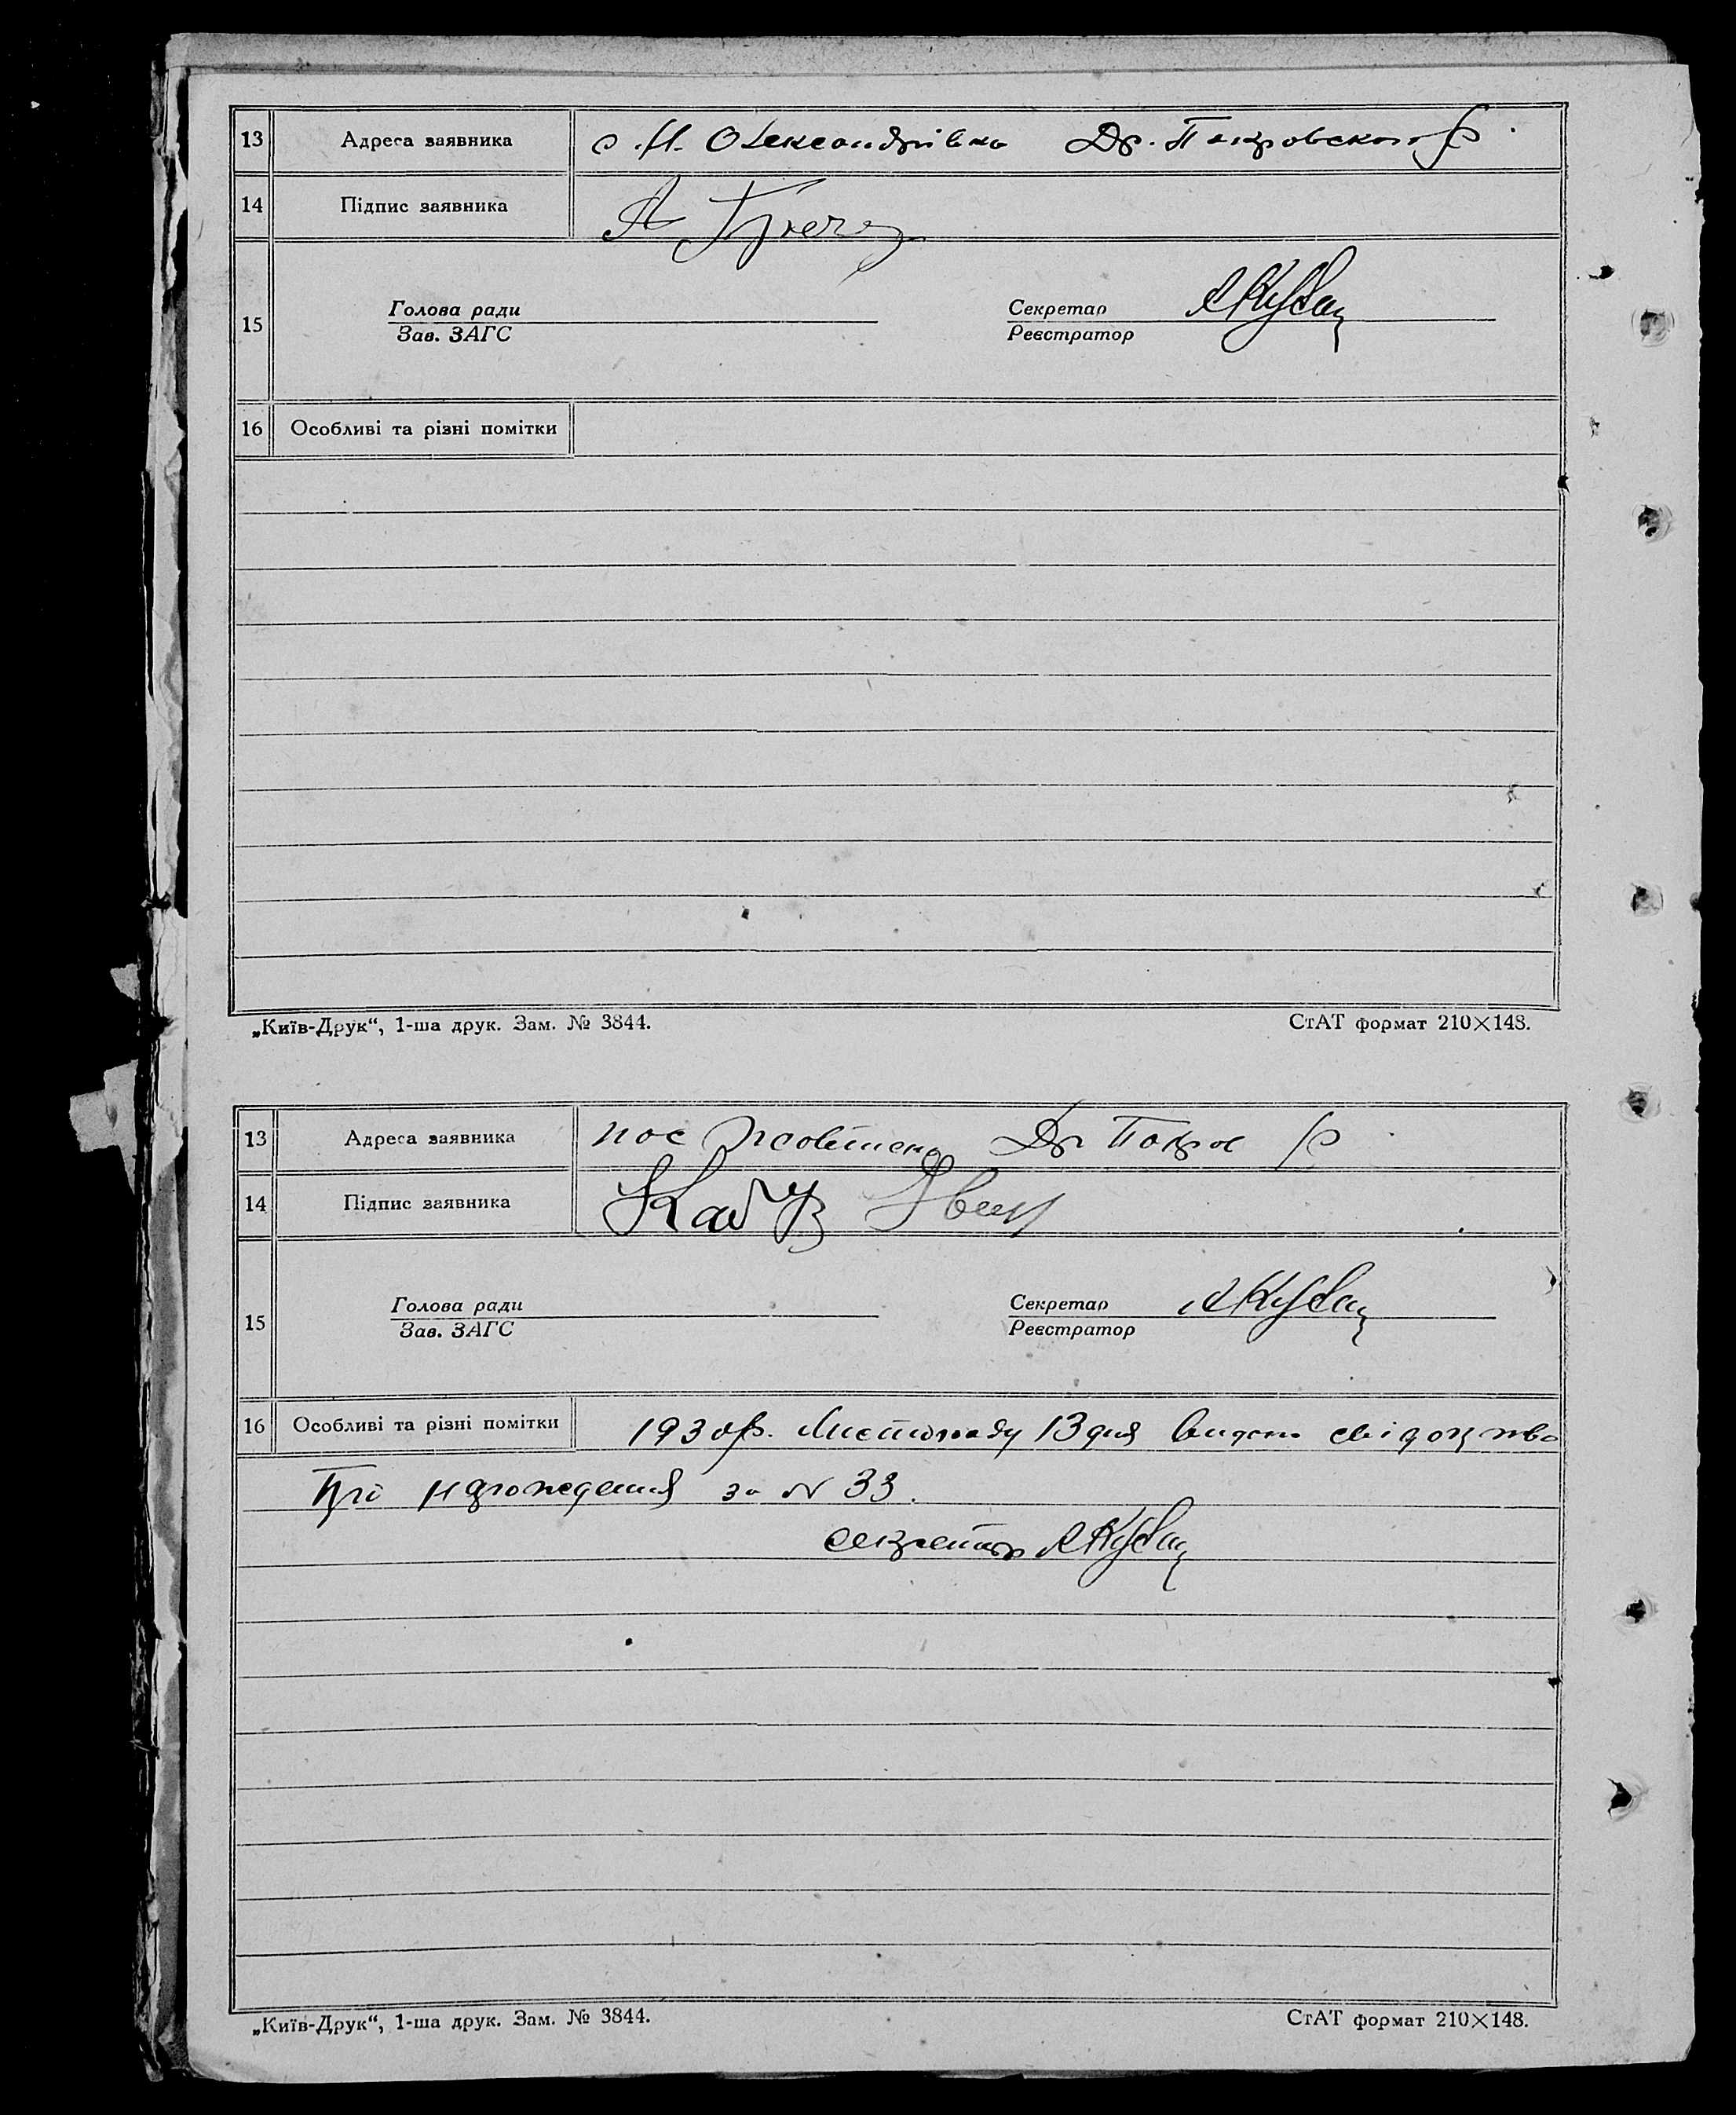 13 Адреса заявника с. Н. Олександрівка Др. Покровського р.
14 Підпис заявника
15 Голова ради Секретар
Зав. ЗАГС Реєстратор
16 Особливі та різні помітки
„Київ-Друк“, 1-ша друк. Зам. № 3844. СтАТ формат 210×148.
13 Адреса заявника пос Др Покров р
14 Підпис заявника
15 Голова ради Секретар
Зав. ЗАГС Реєстратор
16 Особливі та різні помітки 193 р. Листопаду 13 дня видано свідоцтво
Про за N 33.
секретар
„Київ-Друк“, 1-ша друк. Зам. № 3844. СтАТ формат 210×148.